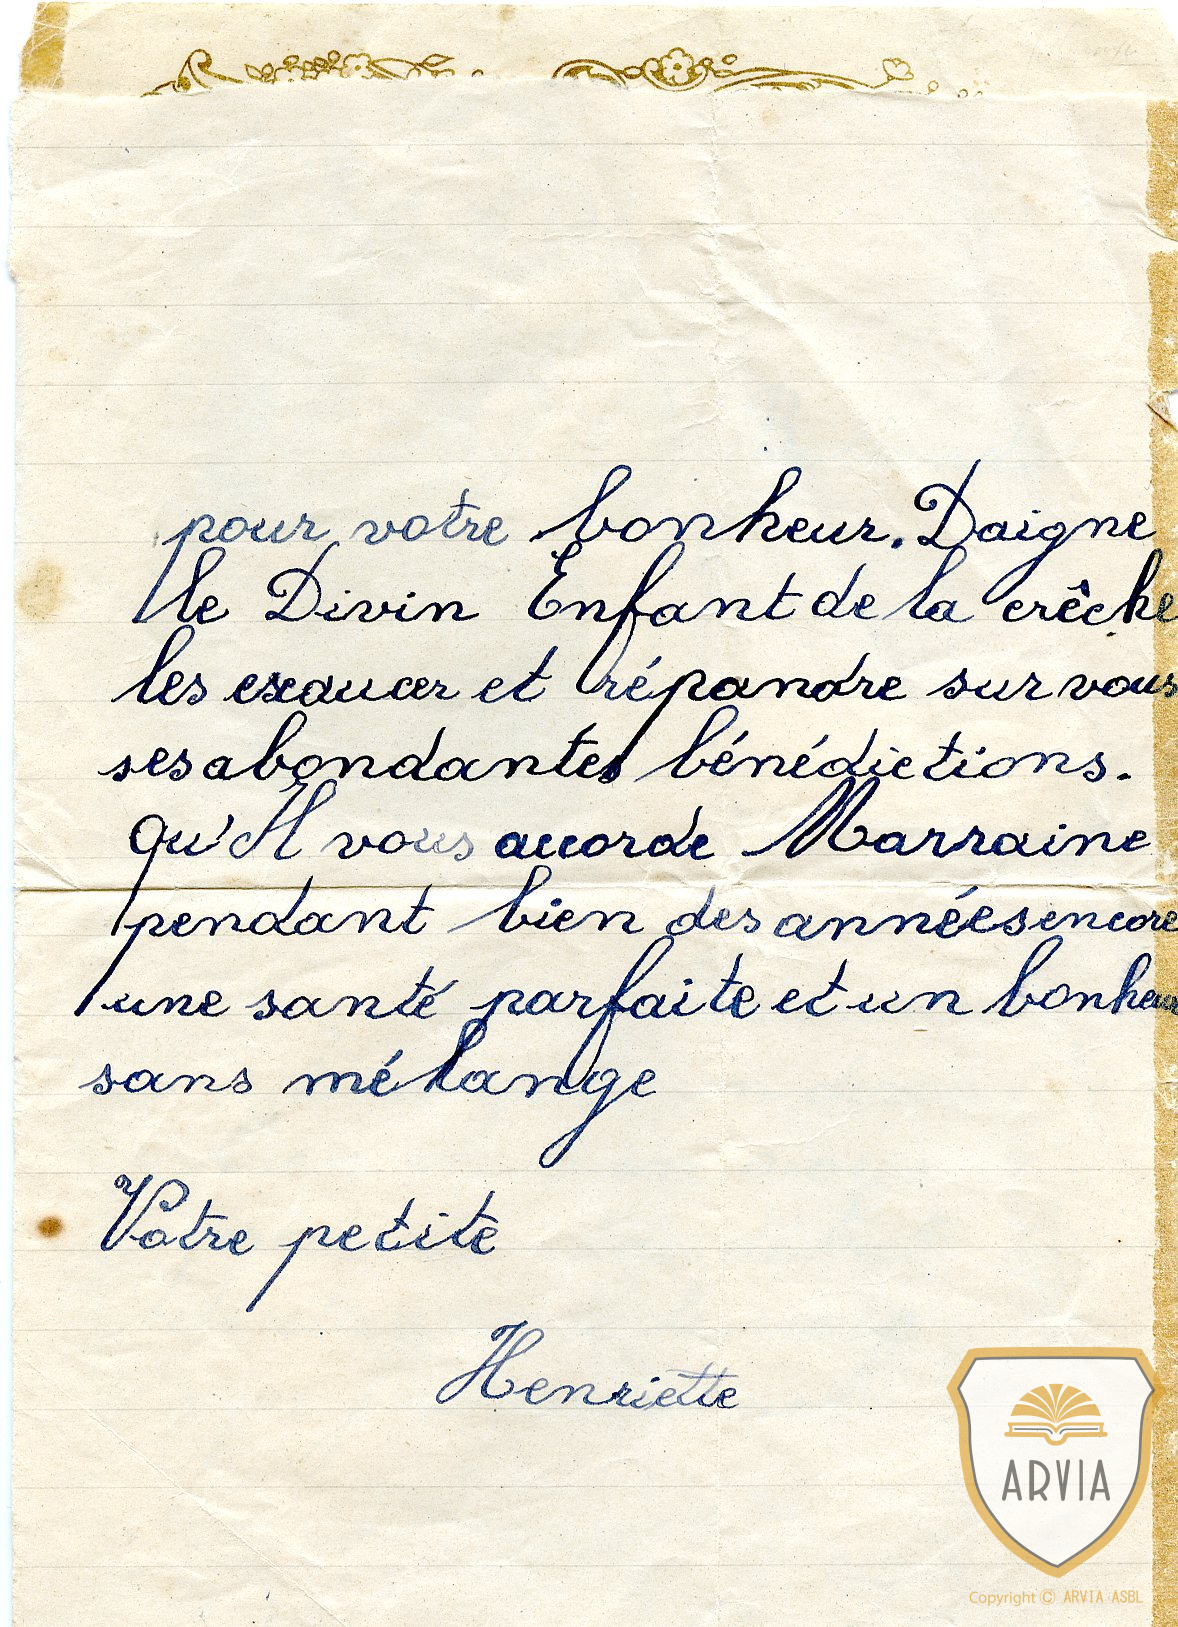 pour votre bonheur. Daigne
le Divin Enfant de la crêche
les exaucer et répandre sur vous
ses abondantes bénédictions.
Qu'Il vous accorde Marraine
pendant bien des années encore
une santé parfaite et un bonheur
sans mélange
Votre petite
Henriette
ARVIA
Copyright © ARVIA ASBL